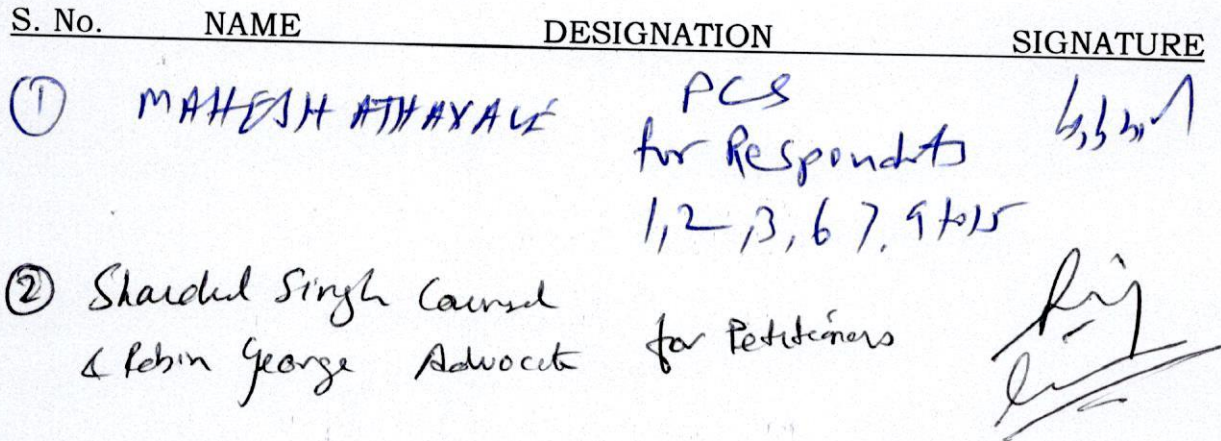 S. No. NAME DESIGNATION SIGNATURE
① MAHESH ATHAVALE PCS
for Respondents
1, 2, 3, 6 7, 9 to 15
② Shardul Singh Counsel
& Robin George Advocate for Petitioners